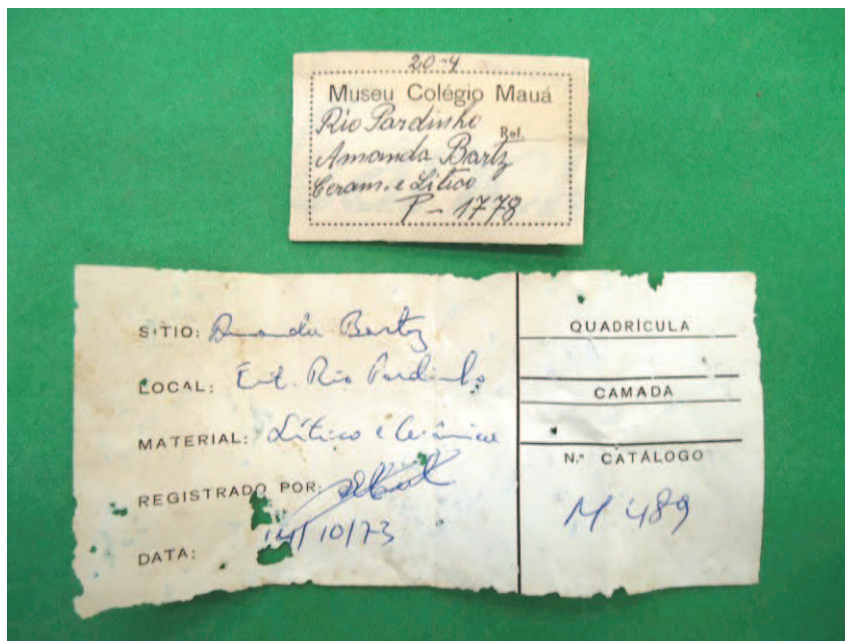 20-4
Museu Colégio Mauá
Rio Pardinho
Ref.
Amanda Bartz
Ceram. e Lítico
P - 1778
SITIO: Amanda Bartz
LOCAL: Rio Pardinho
MATERIAL: Lítico e Cerâmica
REGISTRADO POR:
DATA: 14/10/73
QUADRÍCULA
CAMADA
N.º CATÁLOGO
M 489